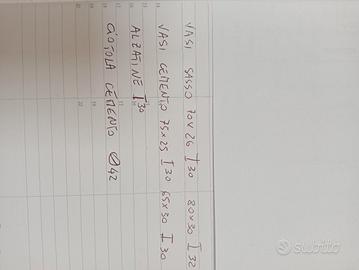 VASI SASSO 70x26 I 30 80x30 I 32
VASI CEMENTO 75x25 I 30 65x30 I 30
ALZATINE I 30
CIOTOLA CEMENTO Ø 42
subito